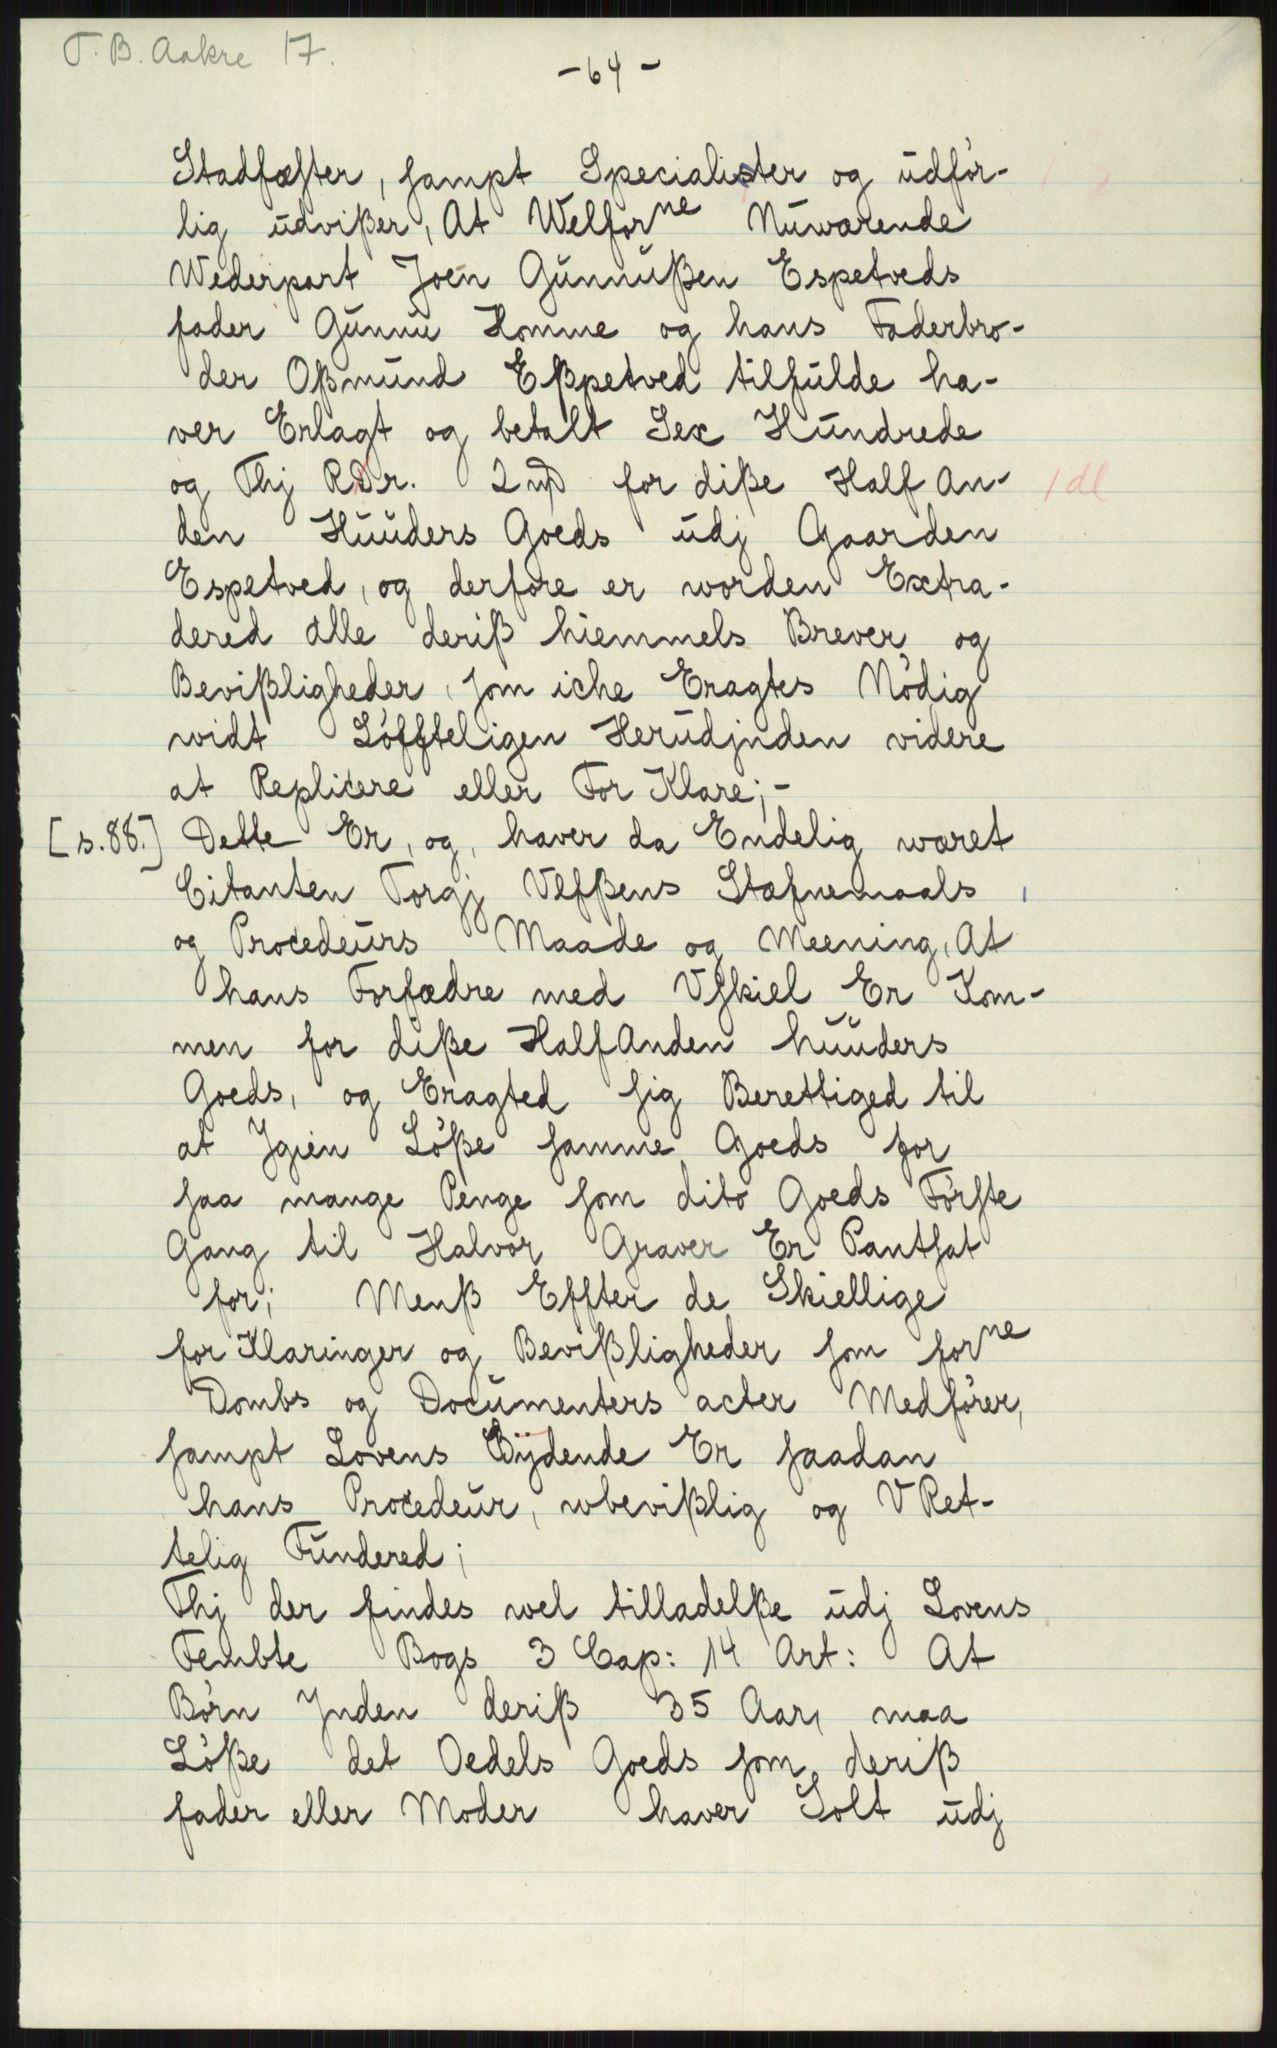 T. B. Aakre 17.
- 64 -
Stadfæster, sampt Specialister og udför-
lig udvißer, At Welforne Nuwærende
Wederpart Joen Gunnußen Espetveds
fader Gunnu Homme og hans Faderbro-
der Oßmund Eßpetved tilfulde ha-
ver Erlagt og betalt Sex Hundrede
og Thj RDr. 2 for diße Half An- 1 dl
den Huuders Goeds udj Gaarden
Espetved, og derfore er worden Extra-
dered alle deriß hiemmels Brever og
Bevißligheder, som iche Eragtes Nödig
widt Löffteligen Herudjnden videre
at Replicere eller For Klare;-
[s.88.] Dette Er, og, haver da Endelig wæret
Citanten Torgj Vlfßens Stæfnemaals
og Procedeurs Maade og Meening, At
hans Forfædre med Vskiel Er Kom-
men for diße Half Anden huuders
Goeds, og Eragted sig Berettiged til
at Jgien Lößе samme Goeds for
saa mange Penge som dito Goeds Förste
Gang til Halvor Graver Er Pantsat
for; Menß Effter de Skiellige
for Klaringer og Bevißligheder som forne
Dombs og Documenters acter Medförer,
sampt Lovens Bydende Er saadan
hans Procedeur, wbevißlig og V Ret-
telig Fundered;
Thj der findes wel tilladelße udj Lovens
Fembte Bogs 3 Cap: 14 Art: At
Börn Jnden deriß 35 Aar, maa
Löße det Oedels Goeds som deriß
fader eller Moder haver Solt udj